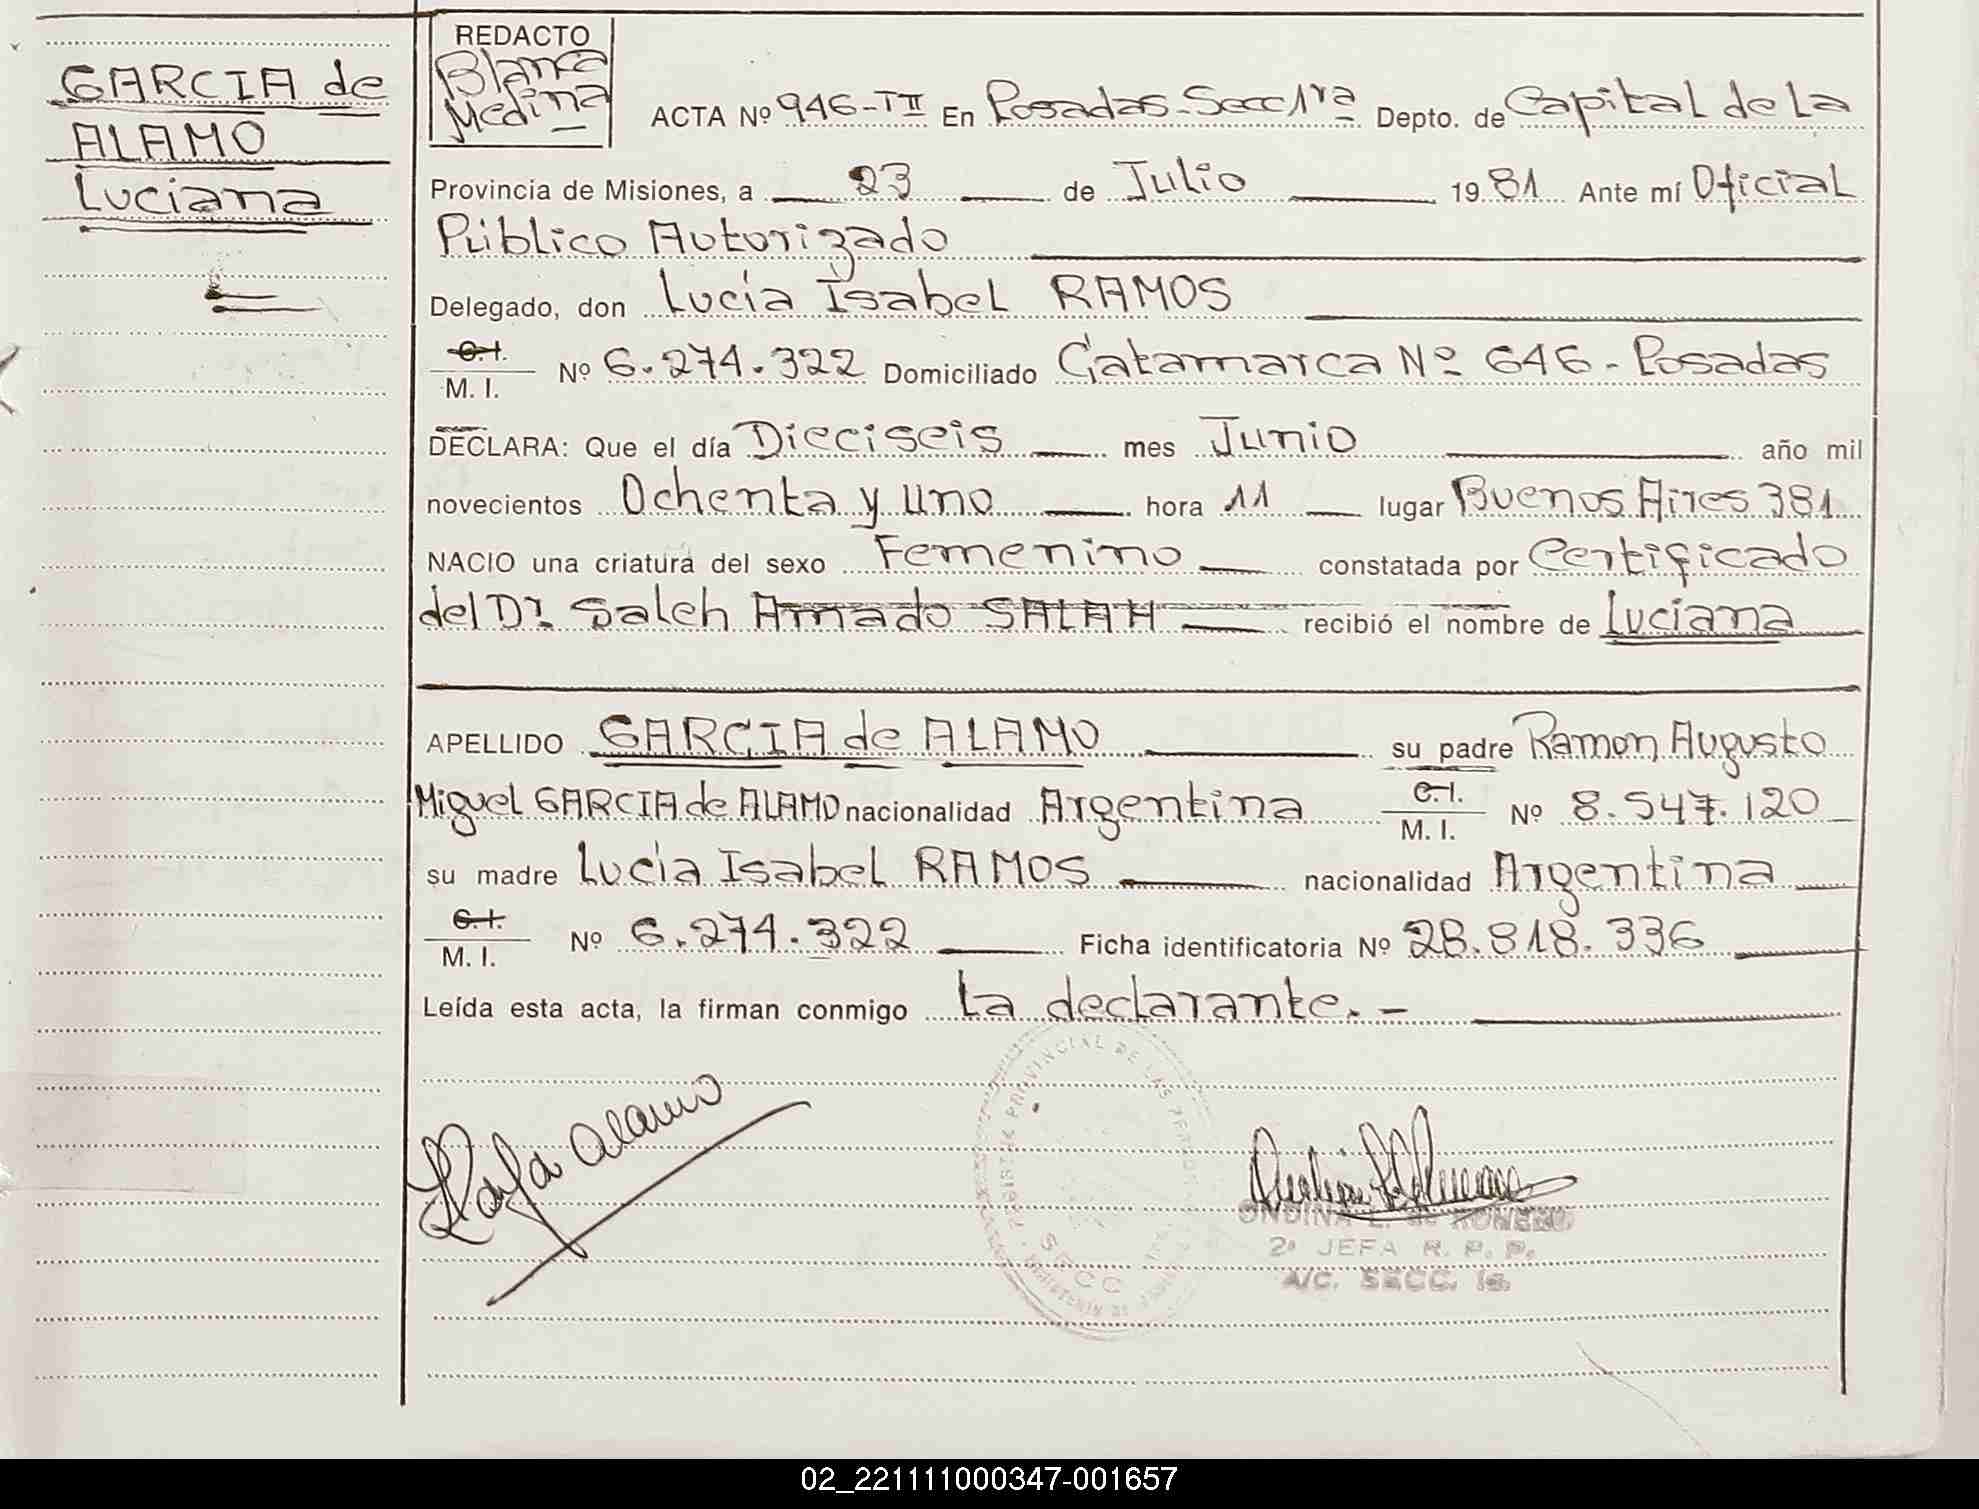 GARCIA de
ALAMO
Luciana
REDACTO
Blanca
Medina
ACTA Nº 946-TII En Posadas-Secc 1ra Depto. de Capital de La
Provincia de Misiones, a 23 de Julio 1981 Ante mí Oficial
Público Autorizado
Delegado, don Lucia Isabel RAMOS
C.I.
M. I. Nº 6.274.322 Domiciliado Catamarca Nº 646 - Posadas
DECLARA: Que el día Dieciseis mes Junio año mil
novecientos Ochenta y uno hora 11 lugar Buenos Aires 381
NACIO una criatura del sexo Femenino constatada por Certificado
del Dr. Saleh Amado SALAH recibió el nombre de Luciana
APELLIDO GARCIA de ALAMO su padre Ramon Augusto
Miguel GARCIA de ALAMO nacionalidad Argentina C.I. M. I. Nº 8.547.120
su madre Lucia Isabel RAMOS nacionalidad Argentina
C.I.
M. I. Nº 6.274.322 Ficha identificatoria Nº 28.818.336
Leída esta acta, la firman conmigo La declarante.-
REGISTRO PROVINCIAL DE LAS
SECC
Alamo
ONDINA L. de ROMERO
2ª JEFA R. P. P.
A/C. SECC. 1a.
02_221111000347-001657